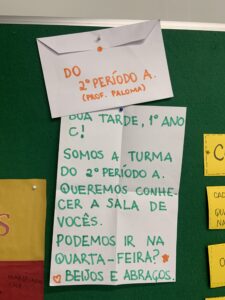 DO
2º PERÍODO A.
(PROF. PALOMA)
BOA TARDE, 1º ANO
C!
SOMOS A TURMA
DO 2º PERÍODO A.
QUEREMOS CONHE-
CER A SALA DE
VOCÊS.
PODEMOS IR NA
QUARTA-FEIRA?
BEIJOS E ABRAÇOS.
S
C
CAD
QUA
N
O